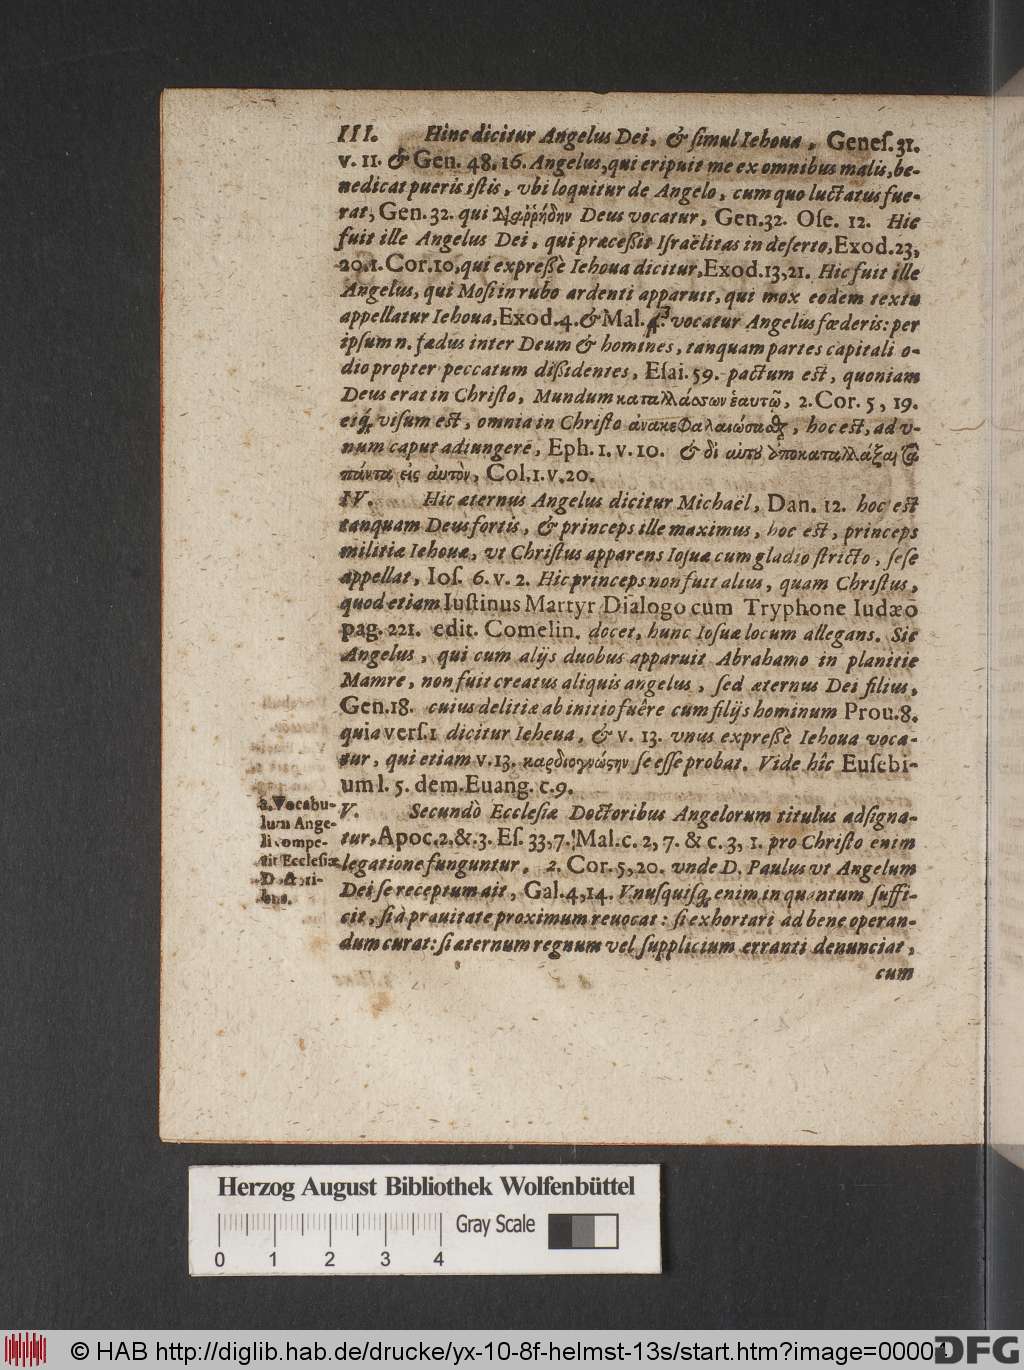 III. Hinc dicitur Angelus Dei, & simul Iehova, Genes. 31.
v. 11. & Gen. 48. 16. Angelus, qui eripuit me ex omnibus malis, be-
nedicat pueris istis, vbi loquitur de Angelo, cum quo luctatus fue-
rat, Gen. 32. qui διαῤῥήδην Deus vocatur, Gen. 32. Ose. 12. Hic
fuit ille Angelus Dei, qui præceßit Israëlitas in deserto, Exod. 23,
20. 1. Cor. 10, qui expreßè Iehoua dicitur, Exod. 13, 21. Hic fuit ille
Angelus, qui Mosi in rubo ardenti apparuit, qui mox eodem textu
appellatur Iehoua, Exod. 4. & Mal. 3. vocatur Angelus fœderis: per
ipsum n. fœdus inter Deum & homines, tanquam partes capitali o-
dio propter peccatum dißidentes, Esai. 59. pactum est, quoniam
Deus erat in Christo, Mundum καταλλάσσων ἑαυτῷ, 2. Cor. 5, 19.
eiq; visum est, omnia in Christo ἀνακεφαλαιώσασθαι, hoc est, ad v-
num caput adiungere, Eph. 1. v. 10. & δι αὐτοῦ ἀποκαταλλάξαι τὰ
πάντα εἰς ἀυτὸν, Col. 1. v. 20.
IV. Hic æternus Angelus dicitur Michaël, Dan. 12. hoc est
tanquam Deus fortis, & princeps ille maximus, hoc est, princeps
militiæ Iehouæ, vt Christus apparens Iosuæ cum gladio stricto, sese
appellat, Ios. 6. v. 2. Hic princeps non fuit alius, quam Christus,
quod etiam Iustinus Martyr Dialogo cum Tryphone Iudæo
pag. 221. edit. Comelin. docet, hunc Iosuæ locum allegans. Sic
Angelus, qui cum alijs duobus apparuit Abrahamo in planitie
Mamre, non fuit creatus aliquis angelus, sed æternus Dei filius,
Gen. 18. cuius delitiæ ab initio fuêre cum filijs hominum Prou. 8.
quia vers. 1 dicitur Iehoua, & v. 13. vnus expreßè Iehoua voca-
tur, qui etiam v. 13. καρδιογνώςην se esse probat. Vide hîc Eusebi-
um l. 5. dem. Euang. c. 9.
a. Vocabu-
lum Ange-
li compe-
tit Ecclesiæ
Doctori-
bus.
V. Secundò Ecclesiæ Doctoribus Angelorum titulus adsigna-
tur, Apoc. 2, &. 3. Es. 33, 7. Mal. c. 2, 7. & c. 3, 1. pro Christo enim
legatione funguntur, 2. Cor. 5, 20. vnde D. Paulus vt Angelum
Dei se receptum ait, Gal. 4, 14. Vnusquisq; enim in quantum suffi-
cit, si à prauitate proximum reuocat: si exhortari ad bene operan-
dum curat: si æternum regnum vel supplicium erranti denunciat,
cum
Herzog August Bibliothek Wolfenbüttel
Gray Scale
0 1 2 3 4
© HAB http://diglib.hab.de/drucke/yx-10-8f-helmst-13s/start.htm?image=00004
DFG